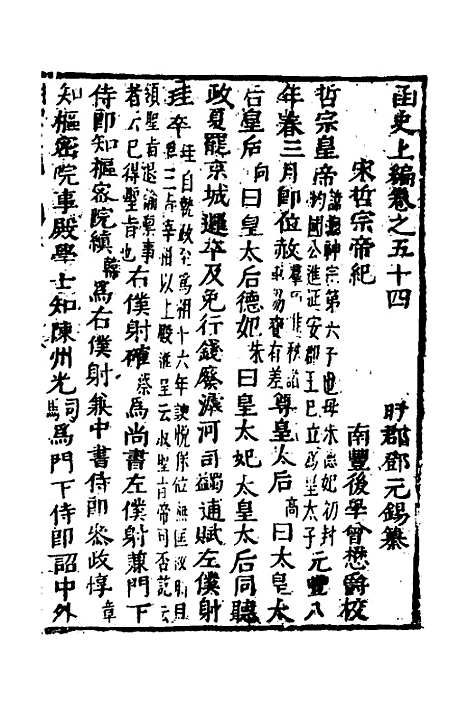 函史上編卷之五十四
盱郡鄧元錫纂
宋哲宗帝紀
南豐後學曾懋爵校
哲宗皇帝諱煦神宗第六子也母朱德妃初封均國公進延安郡王已立爲皇太子元豐八
年春三月即位赦賜有差尊皇太后高曰太皇太
后皇后向曰皇太后德妃朱曰皇太妃太皇太后同聽
政夏罷京城邏卒及免行錢廢濬河司蠲逋賦左僕射
珪卒珪自執政至爲相十六年諛悅保位無匡
領聖旨退諭稟事者曰已得聖旨也右僕射確蔡爲尚書左僕射兼門下
侍郎知樞密院縝韓爲右僕射兼中書侍郎參政惇章
知樞密院事殿學士知陳州光司馬爲門下侍郎詔中外